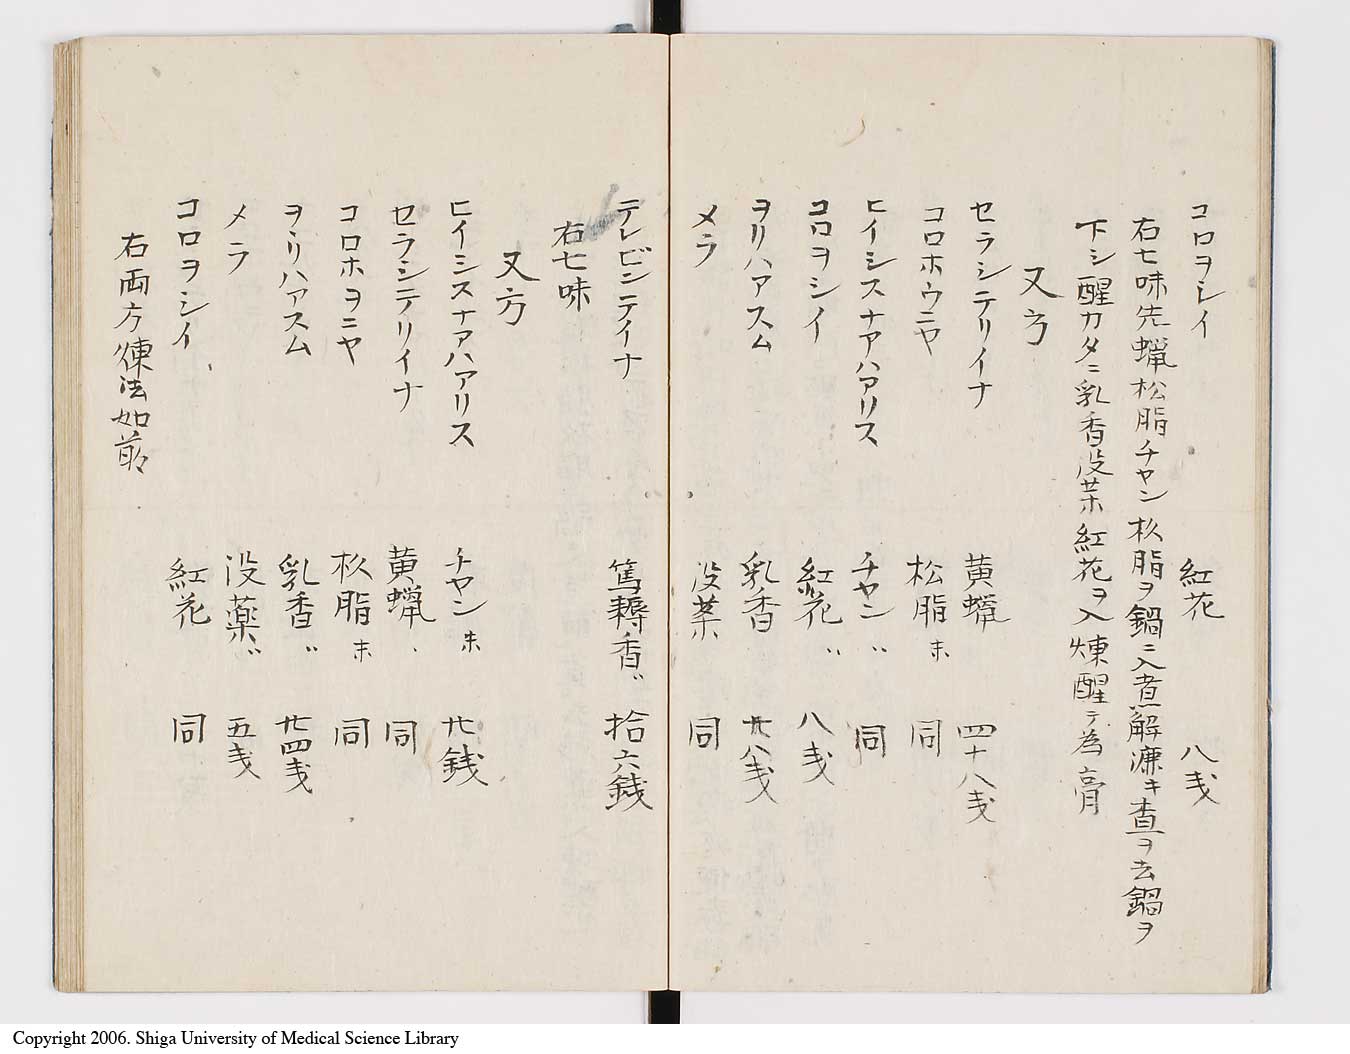 コロヲシイ 紅花 八戔
右七味先蠟松脂チヤン杦脂ヲ鍋ニ入煮解漉キ査ヲ去鍋ヲ
下シ醒カタニ乳香没薬紅花ヲ入煉醒テ為膏
又方
セラシテリイナ 黄蠟〃 四十八戔
コロホウニヤ 松脂末 同
ヒイシスナアハアリス チヤン〃 同
コロヲシイ 紅花〃 八戔
ヲリハアスム 乳香 廿八戔
メラ 没薬 同
テレビンテイナ 篤耨香〃 拾六銭
右七味
又方
ヒイシスナアハアリス チヤン末 廿銭
セラシテリイナ 黄蠟、 同
コロホヲニヤ 杦脂末 同
ヲリハアスム 乳香〃 廿四戔
メラ 没薬〃 五戔
コロヲシイ 紅花 同
右両方煉法如前
Copyright 2006. Shiga University of Medical Science Library